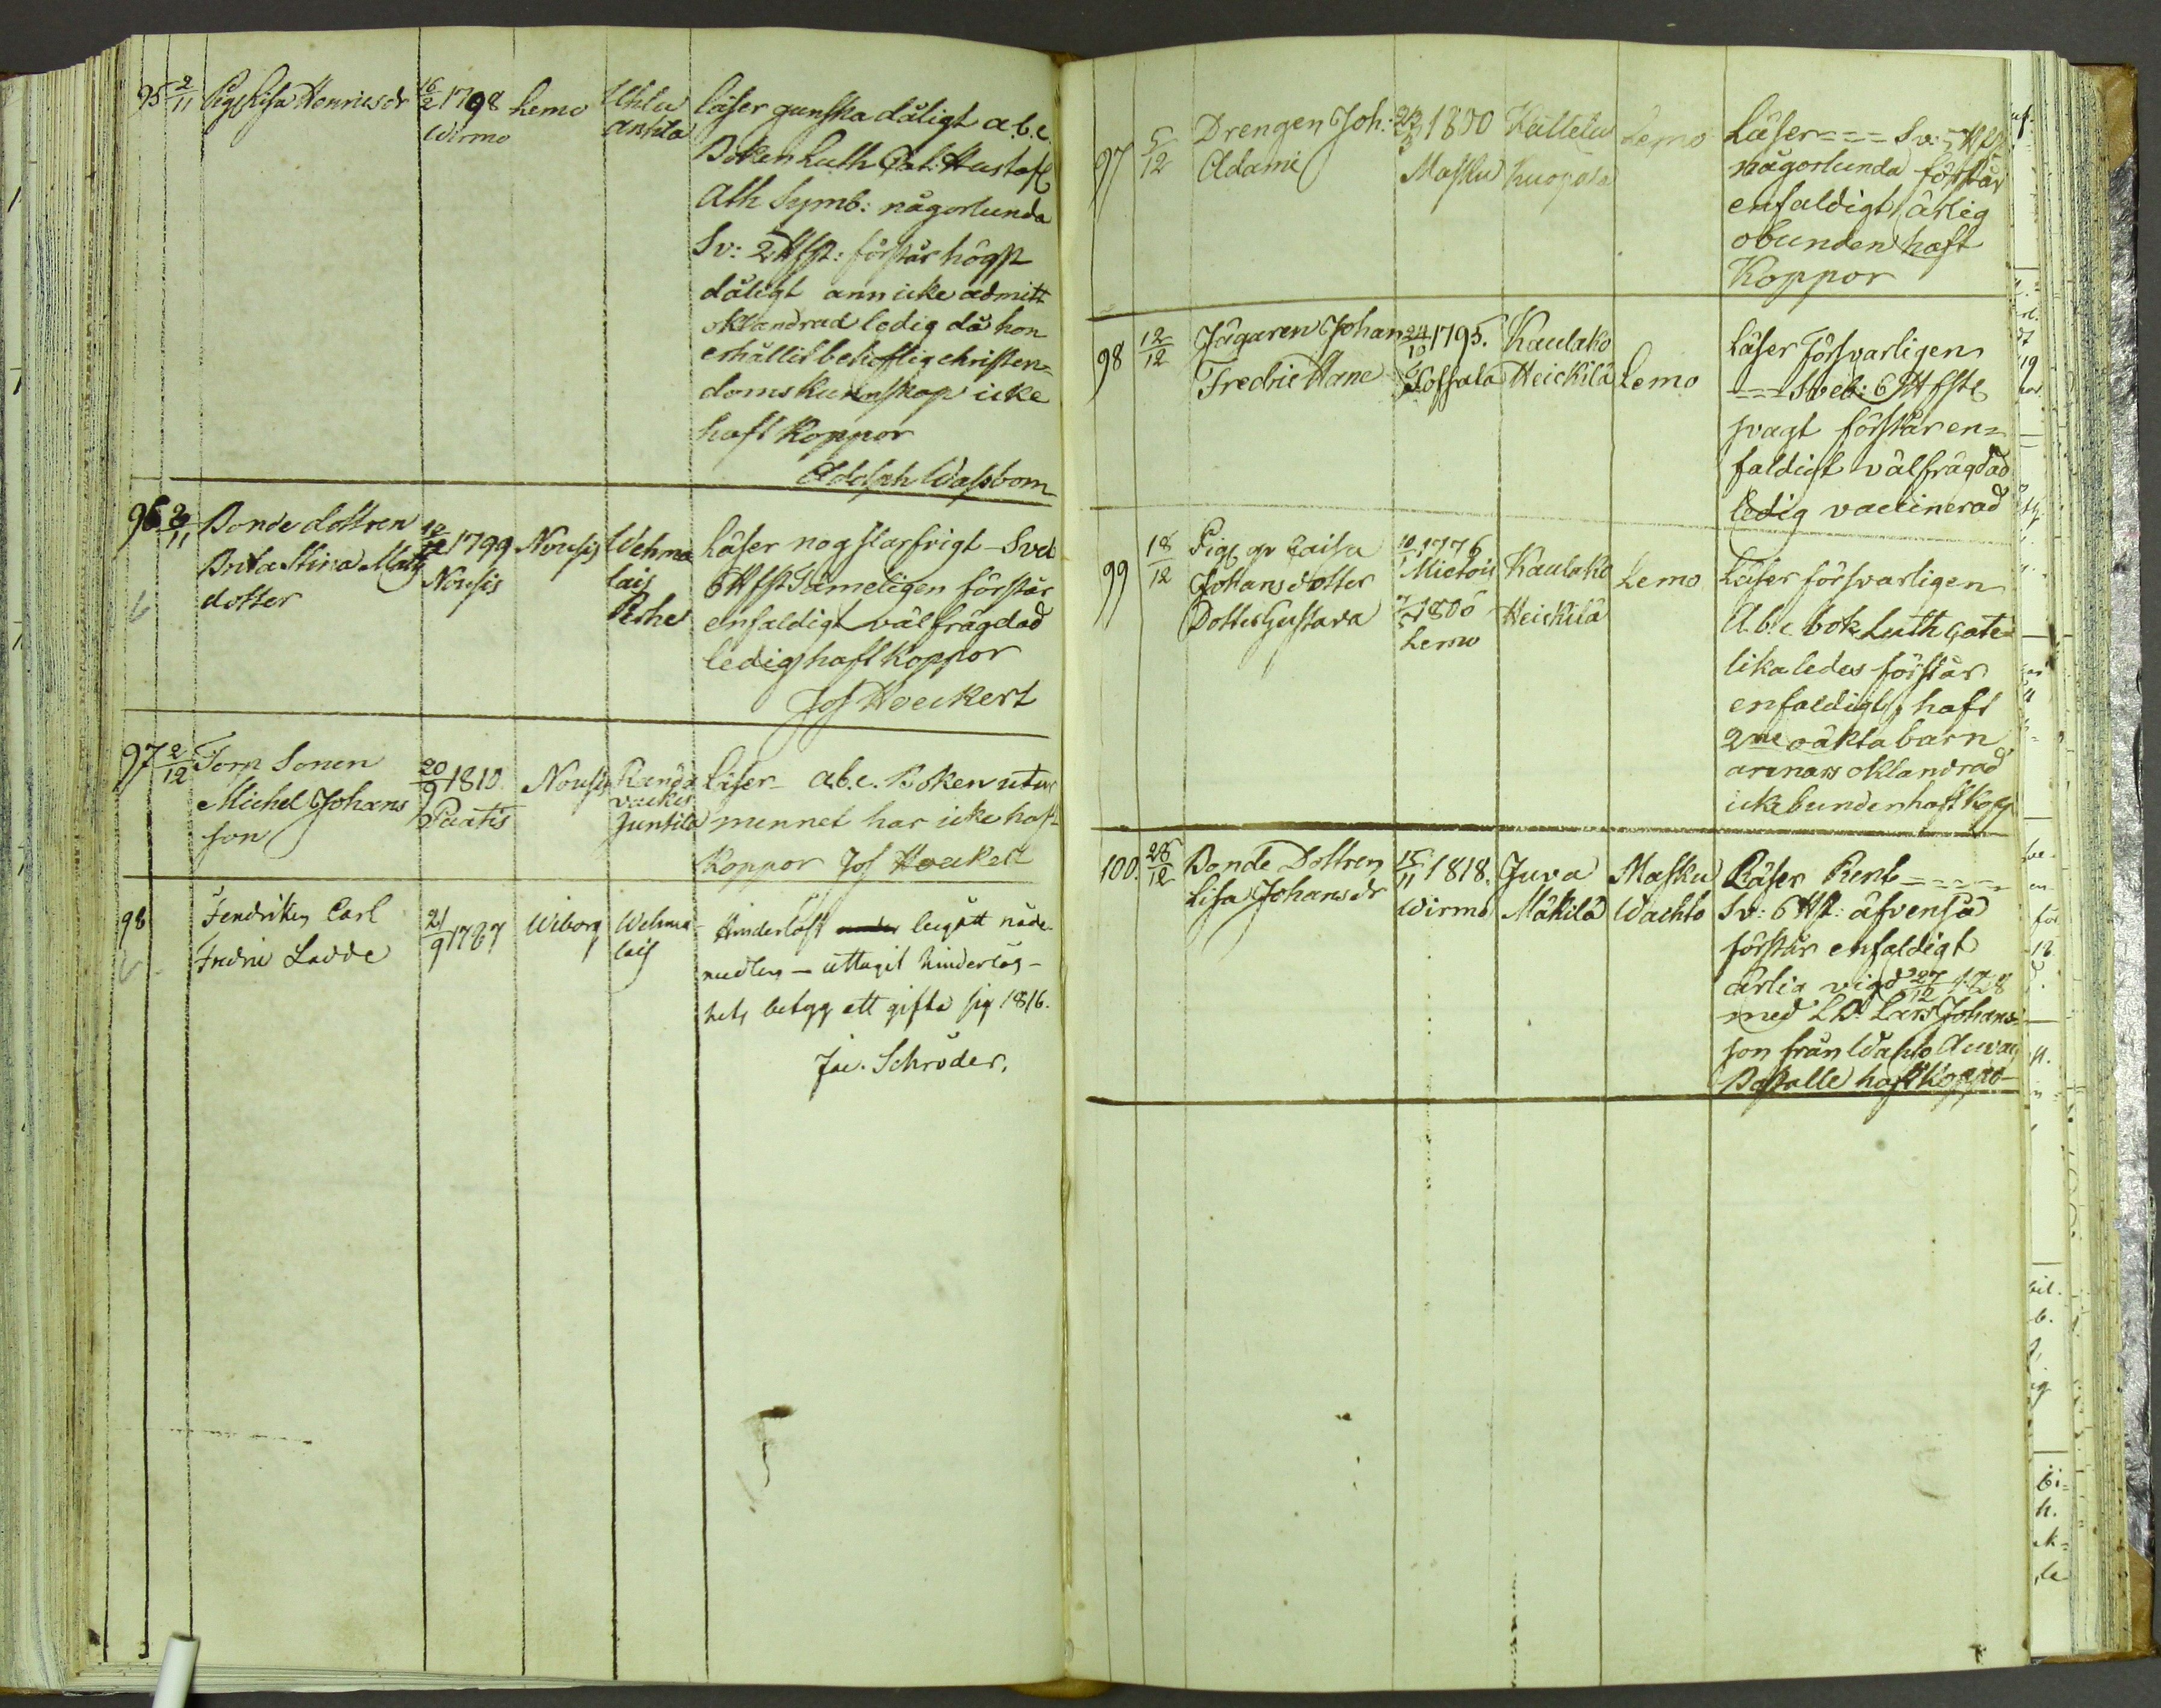 95 2/11 Pig Lisa Henricsdr 16/2 1798 Wirmo Lemo Uhlu anttla
läser ganska dåligt a.b.c.
Boken Luth Cat: Hustafl
Ath Symb: någorlunda
Sv: 2 Hfst: förstår högst
dåligt ann icke admitt
oklandrad ledig då hon
erhållit behöflig christen=
doms kunskap icke
haft Koppor
Adolph Wassbom
96 2/11 Bonde dottren Brita Stina Mats dotter 1799 Nousis Nousis Wehma lais Perhe
Läser nog slarfvigt - Sveb
6 Hfst Tämeligen förstår
enfaldigt välfrägdad
ledig haft koppor
Jos Hoeckert
97 2/12 Torp Sonen Michel Johans son 20/9 1810 Paatis Nousis Randa vackis Juntila
läser - a.b.c. Boken utur
minnet har icke haft
Koppor Jos Hoeckert
98 Fendriken Carl Fredric Ladde 21/9 1787 Wiborg Wehma lais
Hinderlöst begått nåde
medlen - uttagit hinderlös-
hets betyg att gifta sig 1816.
Jac. Schröder.
97 5/12 Drengen Joh: Adami 1800 Masku Kättelä Kuopala Lemo
Läser = = = Sv: 5 Hfst
någorlunda förstår
enfaldigt ärlig
obunden haft
Koppor
98 12/12 Jägaren Johan Fredric Hane 24/10 1795. Kaulako Heickilä Lemo
Läser försvarligen
= = = Sveb: 6 Hfst
svagt förstår en=
faldigt välfrägdad
ledig vaccinerad
99 18/12 Pig Caisa Johans dotter 10/1 1776 Mietois Kaulako Heickilä Lemo
Dotter Gustava 1806 Lemo
Läser försvarligen
A.b.c. bok Luth Cate=
likaledes förstår
enfaldigt, haft
2ne oäkta barn
annars oklandrad
icke bunden haft Kopp
100. 28/12 Bonde Dottren Lisa Johansdr 15/11 1818. Wirmo Juva Mäkilä Masku Wachto
Läser Rent = = = =
Sv: 6 Hf: äfvenså
förstår enfaldigt
ärlig vigd 27/12
med LD. Lars Johans=
son från Wahto
Boställe haft Koppo-